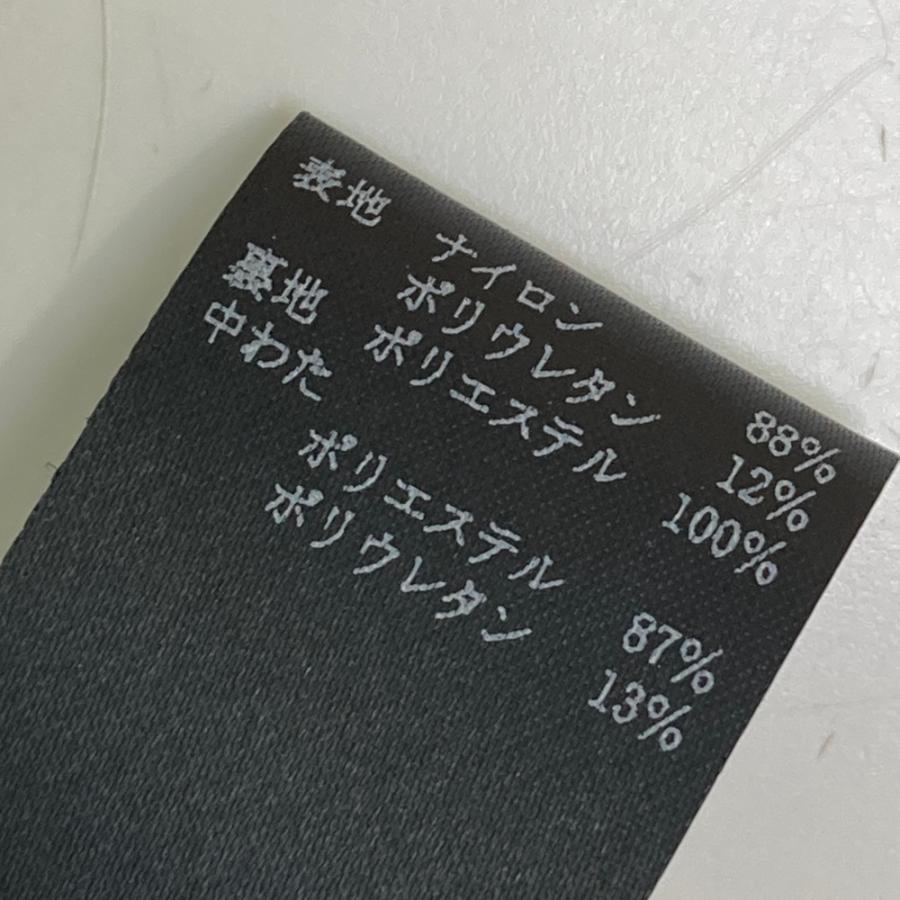 表地 ナイロン 88%
ポリウレタン 12%
裏地 ポリエステル 100%
中わた
ポリエステル 87%
ポリウレタン 13%